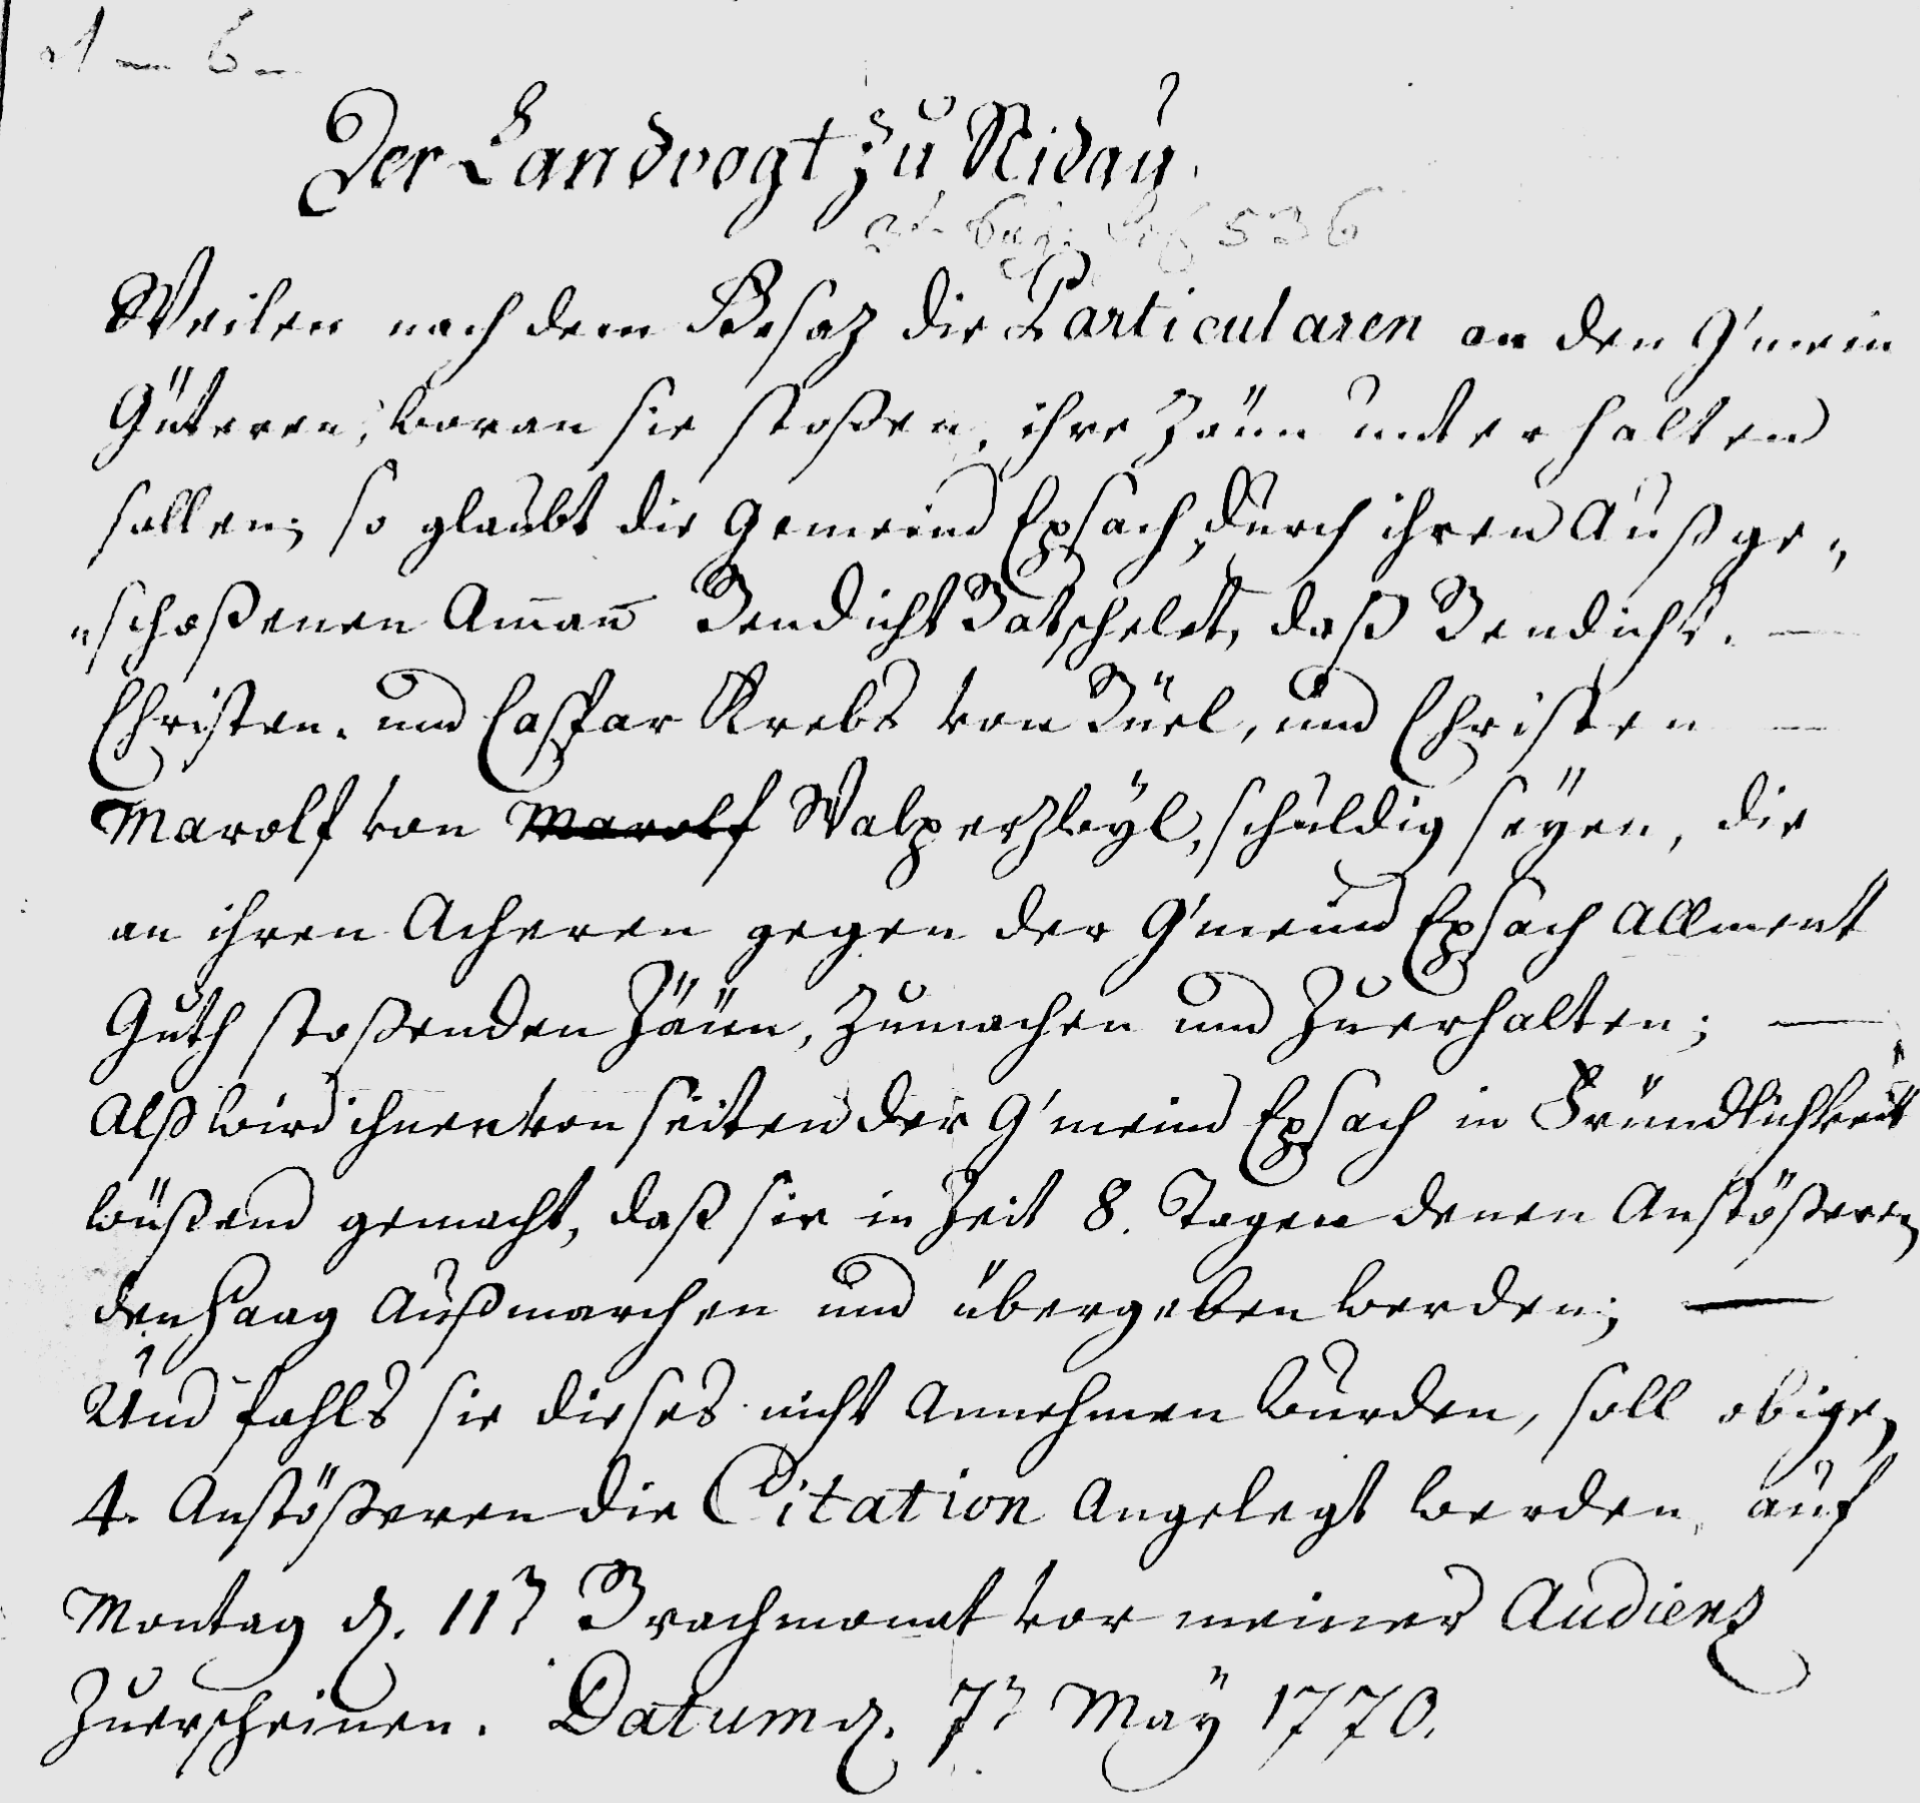 1 — 6 —
Der Landvogt zu Nidau.
536
Weilen nach dem Gesaz die Particularen an den G'mein
Güteren, woran sie stoßen, ihre Zäün unterhalten
sollen; so glaubt die Gemeind Epsach, durch ihren Außge„
„schoßenen Am̄an̄ Bendicht Batschelet, daß Bendicht. —
Christen. und Caspar Krebs von Büel, und Christen —
Marolf von Marolf Walperzwÿl, schuldig seÿen, die
an ihren Acheren gegen der G'meind Epsach Allment
Guth stoßenden Zäün, Zumachen und Zuerhalten; —
Alß wird ihnen von seiten der G'meind Epsach in Fründtlichkeit
wüßend gemacht, daß sie in Zeit 8. Tagen denen Anstößeren
den Haag Außmarchen und übergeben werden; —
Und fahls sie dieses nicht Annehmen wurden, soll obigen
4. Anstößeren die Citation Angelegt werden, auf
Montag d. 11n Brachmonat vor meiner Audienz
Zuerscheinen. Datum d. 7n Maÿ 1770.